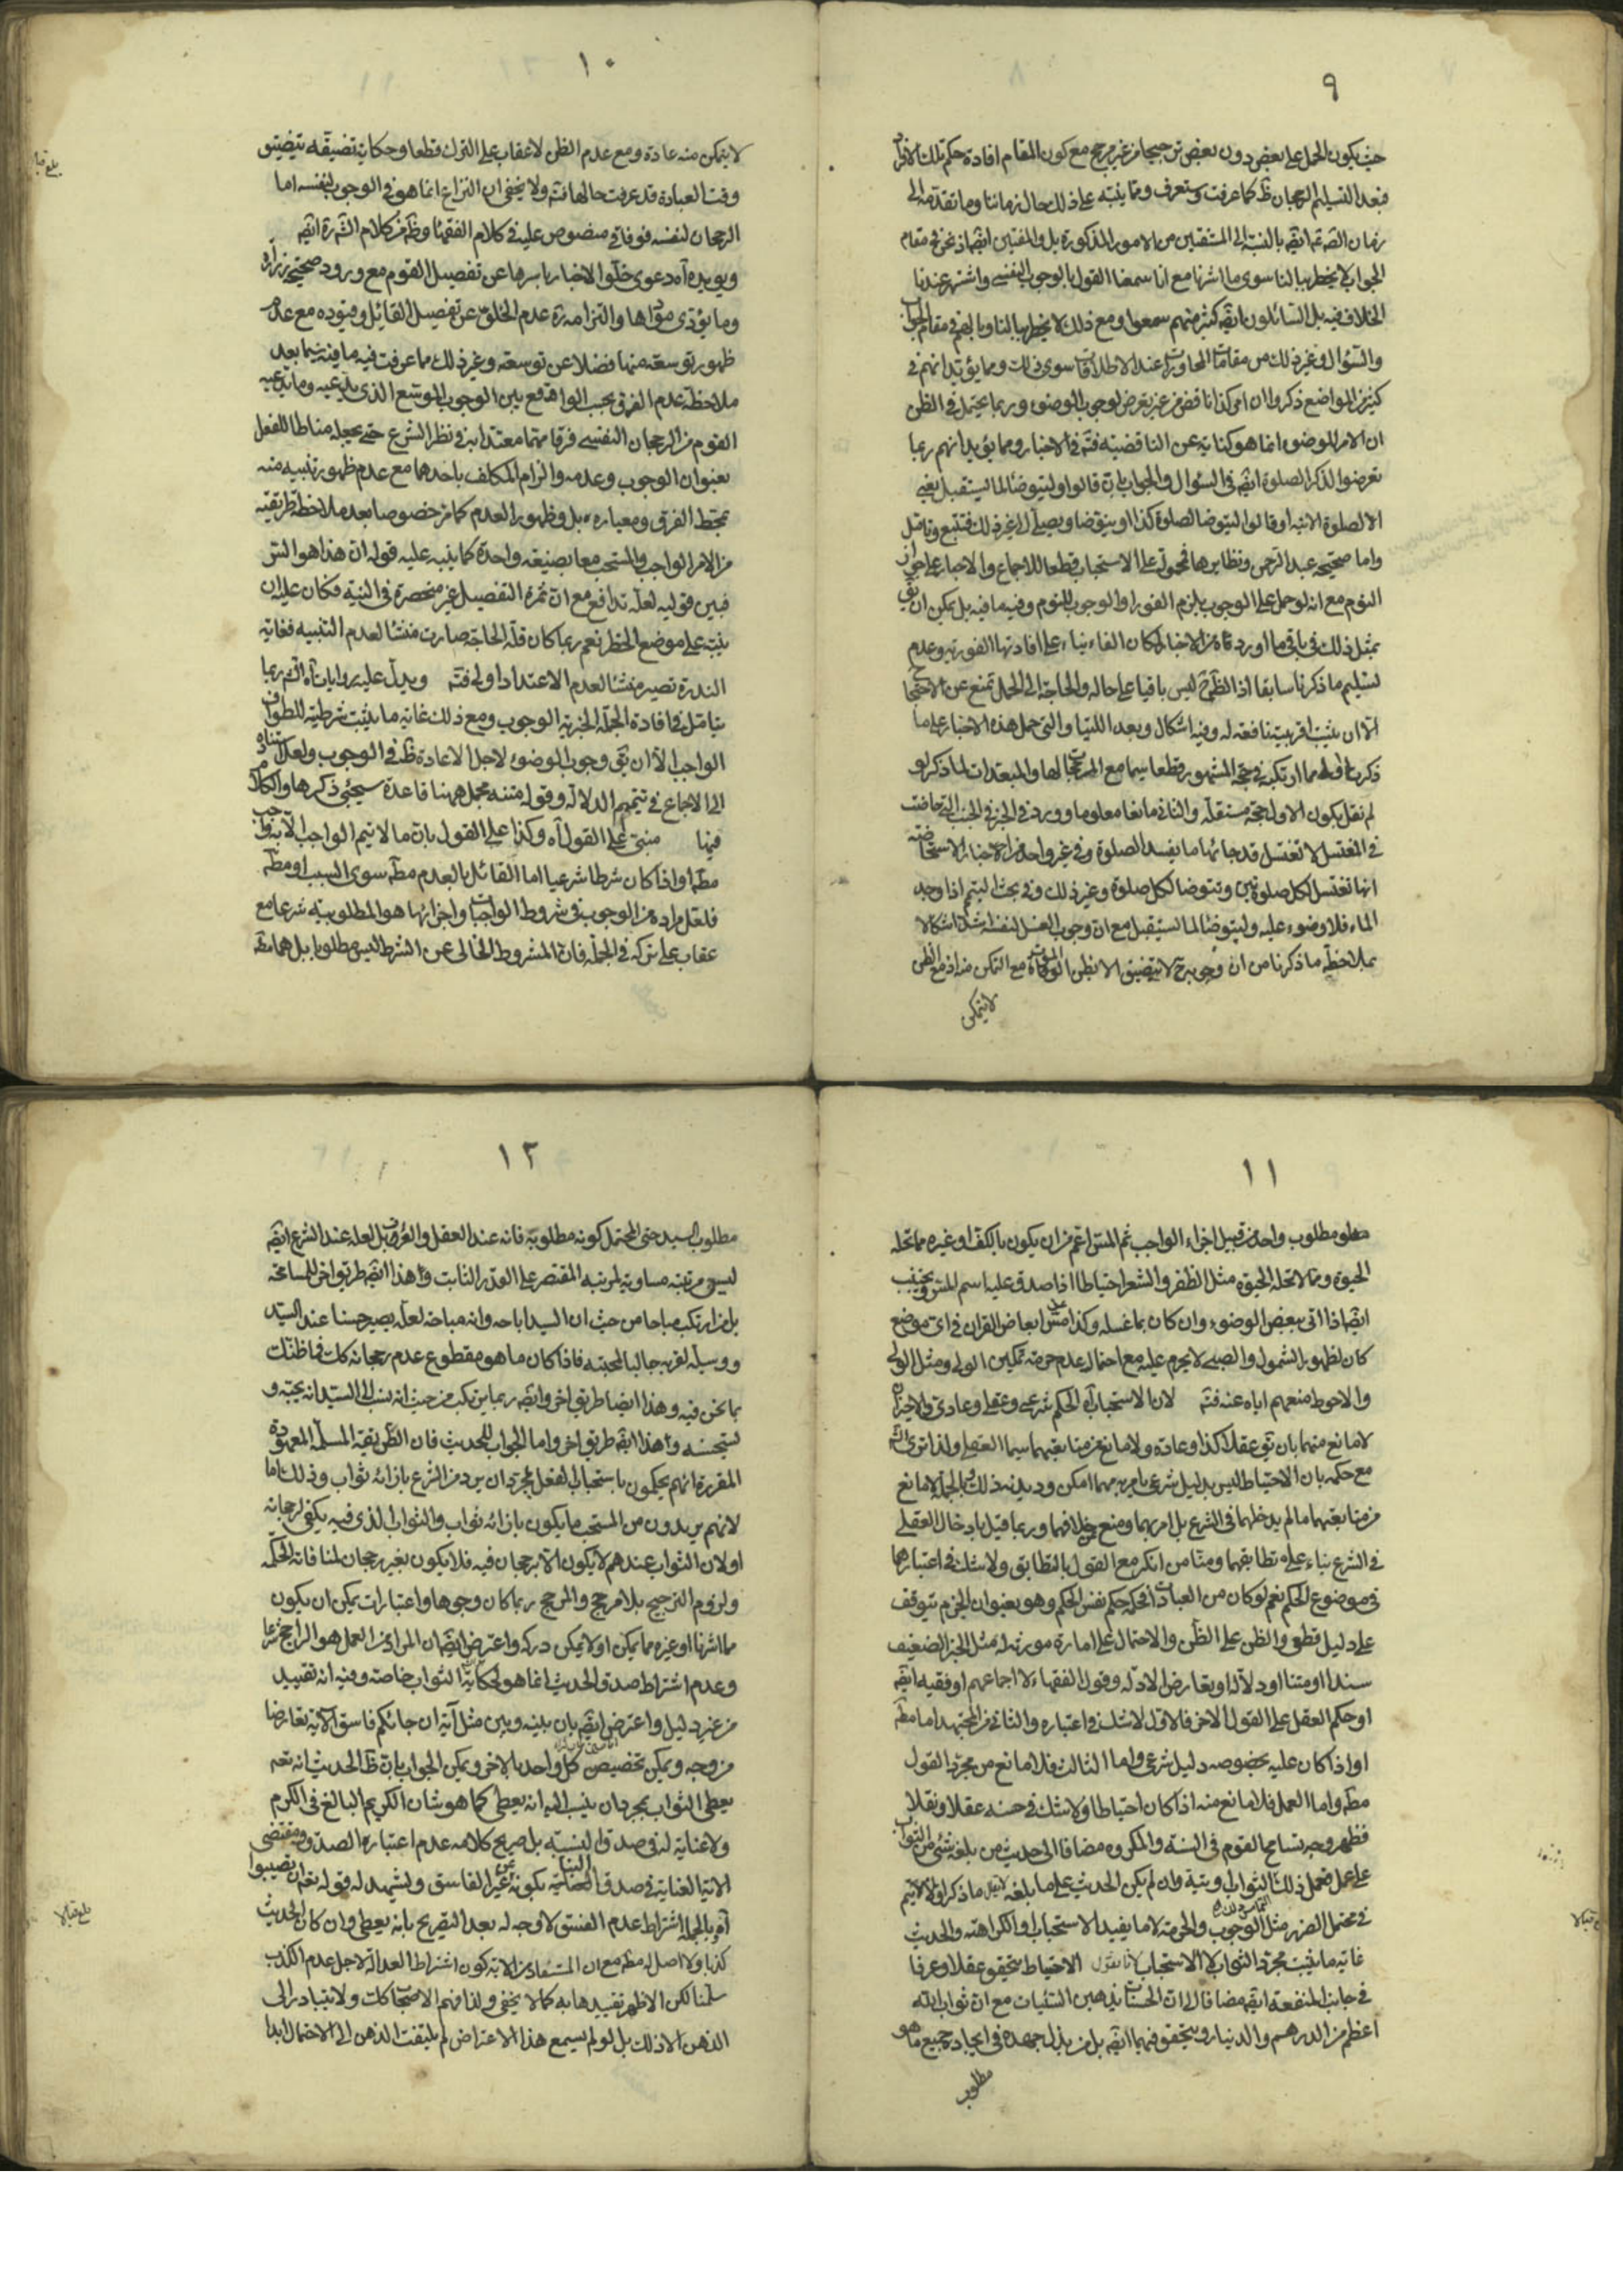 ٩
حيث يكون الحمل على بعض دون بعض ترجيحا من غير مرجح مع كون المقام افادة حكم تلك الافراد
فبعد التسليم الرجحان ظ كما عرفت وستعرف ومما ينبه على ذلك حال زماننا وما تقدمه الى
زمان الائمة ايضا بالنسبة الى المستفتين من الامور المذكورة بل والمفتين ايضا اذ نحن في مقام
الجواب لا يخطر ببالنا سوى ما اشرنا مع انا سمعنا القول بالوجوب النفسي واشتهر عندنا
الخلاف فيه بل السائلون ايضا كثير منهم سمعوا ومع ذلك لا يخطر ببالنا وبالهم في مقام الجواب
والسؤال وغير ذلك من مقامات المحاورات عند الاطلاقات سوى ذلك ومما يؤيد انهم في
كثير من المواضع ذكروا ان امر كذا ناقض من غير تعرض لوجوب الوضوء وربما يحتمل في الظن
ان الامر بالوضوء انما هو كناية عن الناقضية فتم في الاخبار ومما يؤيد انهم ربما
تعرضوا لذكر الصلوة ايضا في السؤال والجواب بان قالوا وليتوضأ لما يستقبل يعني
الا الصلوة الاتية او قالوا ليتوضا لصلوة كذا او يتوضا ويصلي الى غير ذلك فتتبع وتامل
واما صحيحة عبد الرحمن ونظايرها فمحمولة على الاستحباب قطعا للاجماع والاخبار على جواز
النوم مع انه لو حمل على الوجوب يلزم الفور او الوجوب للنوم وفيه ما فيه بل يمكن ان يق
بمثل ذلك في باقي ما اوردناه من الاخبار لمكان الفاء بناء على افادتها الفورية وعدم
تسليم ما ذكرنا سابقا اذ الظ ح ليس باقيا على حاله والحاجة الى الحمل تمنع عن الاحتجاج
الا ان يثبت اقربية نافعة له وفيه اشكال وبعد اللتيا والتي حمل هذه الاخبار على ما
ذكرناه اولى مما ارتكبه في حجة المشهور قطعا سيما مع المرجحات لها والمبعدات لما ذكر لو
لم نقل بكون الاول حجة مستقلة والثاني مانعا معلوما وورد في الخبر في الجنب التي حاضت
في المغتسل لا تغتسل قد جائها ما يفسد الصلوة وفي غير واحد من الاخبار الاستحاضة
انها تغتسل لكل صلوتين وتتوضا لكل صلوة وغير ذلك وفي بحث التيمم اذا وجد
الماء فلا وضوء عليه وليتوضأ لما يستقبل مع ان وجوب الغسل لنفسه اشد اشكالا
بملاحظة ما ذكرنا من ان وجوبه ح لا يتضيق الا بظن الوفاة مع التمكن منه اذ مع الظن
لا يتمكن
١٠
لا يتمكن منه عادة ومع عدم الظن لا عقاب على الترك قطعا وحكاية تضيقه بتضيق
وقت العبادة قد عرفت حالها فتم ولا يخفى ان النزاع انما هو في الوجوب لنفسه اما
الرجحان لنفسه فوفاقي منصوص عليه في كلام الفقهاء وظ من كلام الشهيد ايضا
ويويده آه دعوى خلو الاخبار باسرها عن تفصيل القوم مع ورود صحيحة زرارة
وما يؤدي مؤداها والتزام زيادة عدم الخلو عن تفصيل القائل وقيوده مع عدم
ظهور توسعته منها فضلا عن توسعته وغير ذلك مما عرفت فيه ما فيه سيما بعد
ملاحظة عدم الفرق بحسب الواقع بين الوجوب الموسع الذي يدعيه وما يدعيه
القوم من الرجحان النفسي فرقا مهما معتدا به في نظر الشرع حتى يجعله مناطا للفعل
بعنوان الوجوب وعدمه والزام المكلف باحدهما مع عدم ظهور تنبيه منه
بمحط الفرق ومعياره بل وظهور العدم كما مر خصوصا بعد ملاحظة طريقته
من الامر الواجب والمستحب معا بصيغة واحدة كما ينبه عليه قوله ان هذا هو السر
فبين قوليه لعله تدافع مع ان ثمرة التفصيل غير منحصرة في النية فكان عليه ان
ينبه على موضع الخطر نعم ربما كان قلة الحاجة صارت منشئا لعدم التنبيه فغاية
الندرة تصير منشئا لعدم الاعتداد اولى فتم ويدل عليه روايات آه فتم ربما
يتامل في افادة الجملة الخبرية الوجوب ومع ذلك غاية ما يثبت شرطيته للطواف
الواجب الا ان يق وجوب الوضوء لاجل الاعادة ظ في الوجوب ولعل استناده
الى الاجماع في تتميم الدلالة وقوله متنه مجمل ههنا قاعدة سيجئ ذكرها والكلام
فيها مبني على القول آه وكذا على القول بان ما لا يتم الواجب الا به واجب
مطلقا واذا كان شرطا شرعيا اما القائل بالعدم مطلقا سوى السبب او مطلقا
فلعل مراده من الوجوب في شروط الواجبات واجزائها هو المطلوبية شرعا مع
عقاب على تركه في الجملة فان المشروط الخالي عن الشرط ليس مطلوبا بل هما معا
١١
معلو مطلوب واحد من قبيل اجزاء الواجب ثم المس اعم من ان يكون بالكف او غيره مما تحله
الحيوة ومما لا تحله الحيوة مثل الظفر والشعر احتياطا اذا صدق عليه اسم المس ويجتنب
ايضا اذا اتى ببعض الوضوء وان كان بما غسله وكذا مس ابعاض القران في اي موضع
كان لظهور الشمول والصبي لا يحرم عليه مع احتمال عدم حرمة تمكين الولي ومثل الولي
والاحوط منعهم اياه عنه فتم لان الاستحباب آه الحكم شرعي وعقلي وعادي والاخيران
لا مانع منهما بان يق عقلا كذا وعادة ولا مانع من متابعتهما سيما العقلي ولذا ترى
مع حكمه بان الاحتياط ليس بدليل شرعي يامر به مهما امكن وديدنه ذلك وبالجملة لا مانع
من متابعتهما ما لم يدخلهما في الشرع بل امر بهما ومنع خلافهما وربما قيل بادخال العقلي
في الشرع بناء على تطابقهما ومنا من انكر مع القول بالتطابق ولا شك في اعتبارهما
في موضوع الحكم نعم لو كان من العبادات الحكم حكم نفس الحكم وهو بعنوان الجزم يتوقف
على دليل قطعي والظن على الظن والاحتمال على امارة مورثة له مثل الخبر الضعيف
سندا او متنا او دلالة او تعارض الادلة وقول الفقهاء لا اجماعهم او فقيه ايضا
او حكم العقل على القول الاخر فالاول لا شك في اعتباره والثاني من المجتهد اما مطلقا
او اذا كان عليه بخصوصه دليل شرعي واما الثالث فلا مانع من مجرد القول
مطلقا واما العمل فلا مانع منه اذا كان احتياطا ولا شك في حسنه عقلا ونقلا
فظهر وجه تسامح القوم في السنة والمكروه مضافا الى حديث من بلغه شئ من الثواب
على عمل فعمل ذلك الثواب اوتيه وان لم يكن الحديث على ما بلغه ما ذكر اولا لا يتم
في محتمل الضرر مثل الوجوب والحرمة لا ما يفيد الاستحباب او الكراهة والحديث
غاية ما يثبت مجرد الثواب لا الاستحباب لانا نقول الاحتياط يتحقق عقلا وعرفا
في جانب المنفعة ايضا مضافا الى ان الحسنات يذهبن السيئات مع ان ثواب الله
اعظم من الدرهم والدينار ويتحقق فيهما ايضا بل من بذل جهده في ايجاد جميع ما هو
مطلوب
١٢
مطلوب السيد حتى المحتمل كونه مطلوبه فانه عند العقل والعرف بل لعله عند الشرع ايضا
ليس مرتبته مساوية لمرتبة المقتصر على القدر الثابت وهذا ايضا طريق اخر للمسامحة
بل من ارتكب مباحا من حيث ان السيد اباحه وانه مباحه لعله يصير حسنا عند السيد
ووسيلة لقربه جالبا لمحبته فاذا كان ما هو مقطوع عدم رجحانه كك فما ظنك
بما نحن فيه وهذا ايضا طريق اخر وايضا ربما يرتكب من حيث انه نسب الى السيد انه يحبه و
يستحسنه وهذا ايضا طريق اخر واما الجواب للحديث فان الطريقة المسلمة المعهودة
المقررة انهم يحكمون باستحباب الفعل بمجرد ان يرد من الشرع بازائه ثواب وذلك اما
لانهم يريدون من المستحب ما يكون بازائه ثواب والثواب الذي فيه يكفي لرجحانه
او لان الثواب عندهم لا يكون الا برجحان فيه فلا يكون بغير رجحان لمنافاته الحكمة
ولزوم الترجيح بلا مرجح والمرجح ربما كان وجوها واعتبارات يمكن ان يكون
مما اشرنا او غيره مما يمكن او لا يمكن دركه واعترض ايضا ان المراد من العمل هو الراجح شرعا
وعدم اشتراط صدق الحديث انما هو لحكاية الثواب خاصة وفيه انه تقييد
من غير دليل واعترض ايضا بان بينه وبين مثل آية ان جائكم فاسق الاية تعارضا
من وجه ويمكن تخصيص كل واحد بالاخر ويمكن الجواب بان ظ الحديث انه نعم
يعطي الثواب بمجرد ان ينسب اليه انه يعطي كما هو شان الكريم البالغ في الكرم
ولا عناية له في صدق النسبة بل صريح كلامه عدم اعتباره الصدق ومقتضى
الاية العناية في صدق بكونه غير الفاسق ويشهد له قوله تعم ان تصيبوا
آه وبالجملة اشتراط عدم الفسق لا وجه له بعد التصريح بانه يعطي وان كان الحديث
كذبا ولا اصل له مطلقا مع ان المستفاد من الاية كون اشتراط العدالة لاجل عدم الكذب
سلمنا لكن الاظهر تقييدها به كما لا يخفى ولذا فهم الاصحاب كك ولا يتبادر الى
الذهن الا ذلك بل لو لم يسمع هذا الاعتراض لم يلتفت الذهن الى الاحتمال ابدا